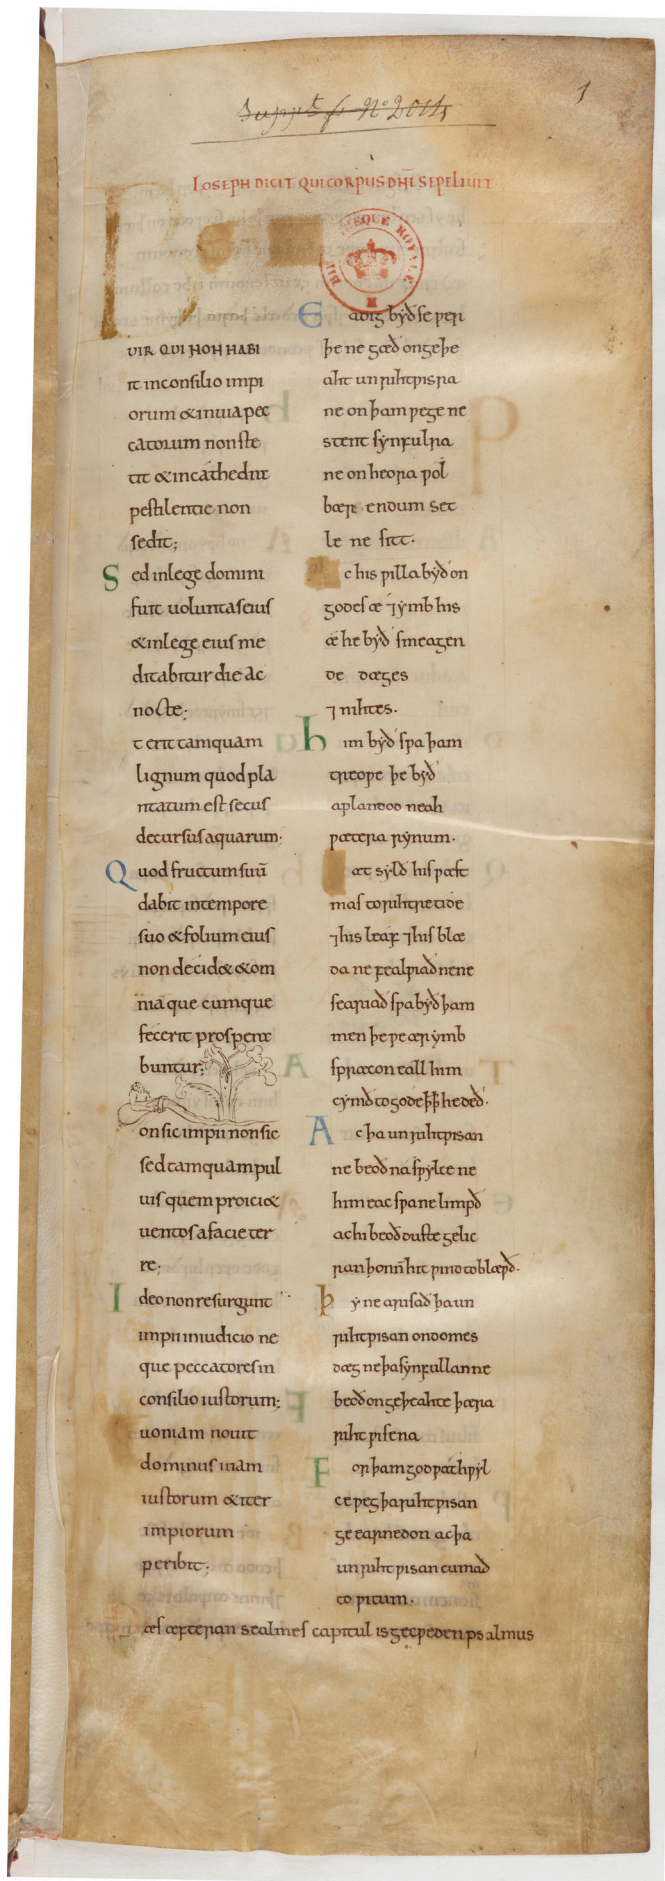 Suppt fr No 2014
1
IOSEPH DICIT QUI CORPUS DHI SEPELIUIT
BIBLIOTHEQUE ROYALE
UIR QUI NON HABI
it inconsilio impi
orum & inuia pec
catorum non ste
tit & incathedra
pestilentie non
sedit;
Sed inlege domini
fuit uoluntas eius
& inlege eius me
ditabitur die ac
nocte;
t erit tamquam
lignum quod pla
ntatum est secus
decursus aquarum;
Quod fructum suū
dabit intempore
suo & folium eius
non decid& & om
nia que cumque
fecerit prospera
buntur;
on sic impii non sic
sed tamquam pul
uis quem proici&
uentos a facie ter
re;
Ideo non resurgunt
impii iniudicio ne
que peccatores in
consilio iustorum;
uoniam nouit
dominus uiam
iustorum & iter
impiorum
peribit;
Eadig byð se ƿer
þe ne gæð on geþe
aht unrihtƿisra
ne on þam ƿege ne
stent synfulra
ne on heora ƿol
bærendum set
le ne sitt.
c his ƿilla byð on
godes æ ⁊ ymb his
æ he byð smeagen
de dæges
⁊ nihtes.
him byð sƿa þam
treoƿe þe byð
aplantod neah
ƿætera rynum.
æt sylð his ƿæst
mas to rihtre tide
⁊ his leaf ⁊ his blæ
da ne fealƿiað ne ne
seariað sƿa byð þam
men þe ƿe ær ymb
spræcon eall him
cymð to gode þæt þæt he deð.
Ac þa unrihtƿisan
ne beoð na sƿylce ne
him eac sƿa ne limpð
ac hi beoð duste gelic
ran þonn̄ hit ƿind toblæƿð.
þy ne arisað þa un
rihtƿisan on domes
dæg ne þa synfullan ne
beoð on geþeahte þæra
rihtƿisena
For þam god ƿat hƿyl
ce ƿeg þa rihtƿisan
geearnedon ac þa
unrihtƿisan cumað
to ƿitum.
æs æfteran sealmes capitul is gecƿeden psalmus